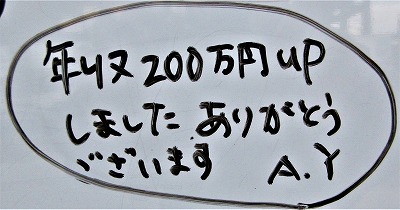 年収200万円up
しました ありがとう
ございます A.Y